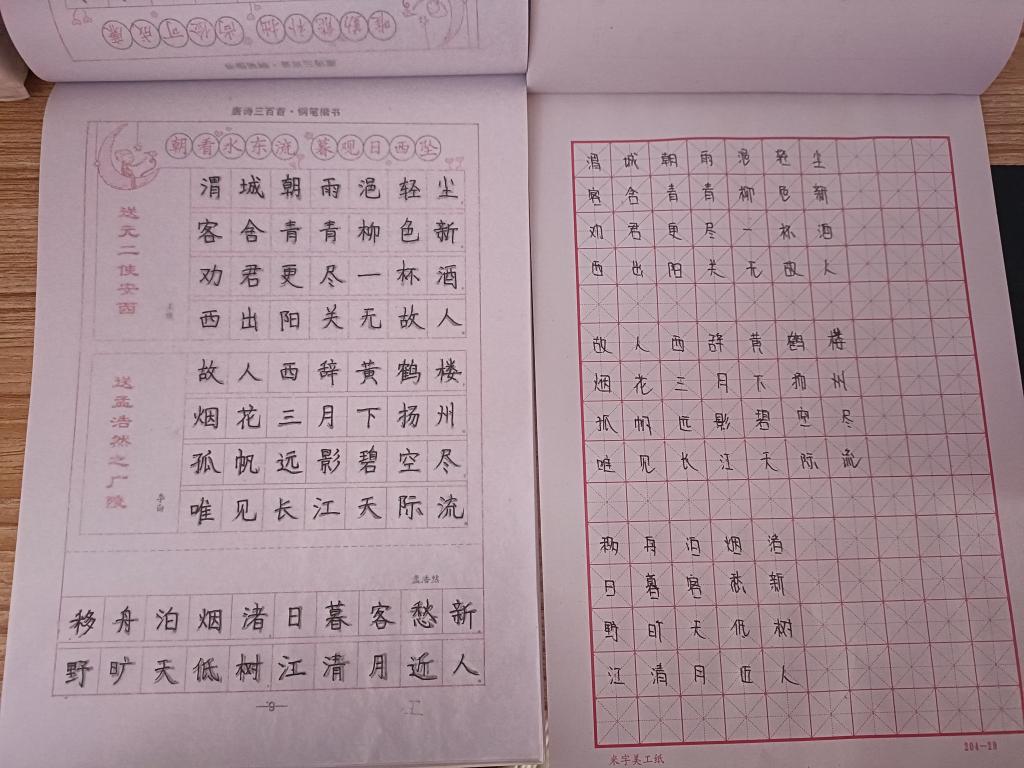 唐诗三百首·钢笔楷书
朝看水东流 暮观日西坠
送元二使安西
渭城朝雨浥轻尘
客舍青青柳色新
劝君更尽一杯酒
西出阳关无故人
送孟浩然之广陵
李白
故人西辞黄鹤楼
烟花三月下扬州
孤帆远影碧空尽
唯见长江天际流
孟浩然
移舟泊烟渚日暮客愁新
野旷天低树江清月近人
9
渭城朝雨浥轻尘
客舍青青柳色新
劝君更尽一杯酒
西出阳关无故人
故人西辞黄鹤楼
烟花三月下扬州
孤帆远影碧空尽
唯见长江天际流
移舟泊烟渚
日暮客愁新
野旷天低树
江清月近人
米字美工纸
204-20